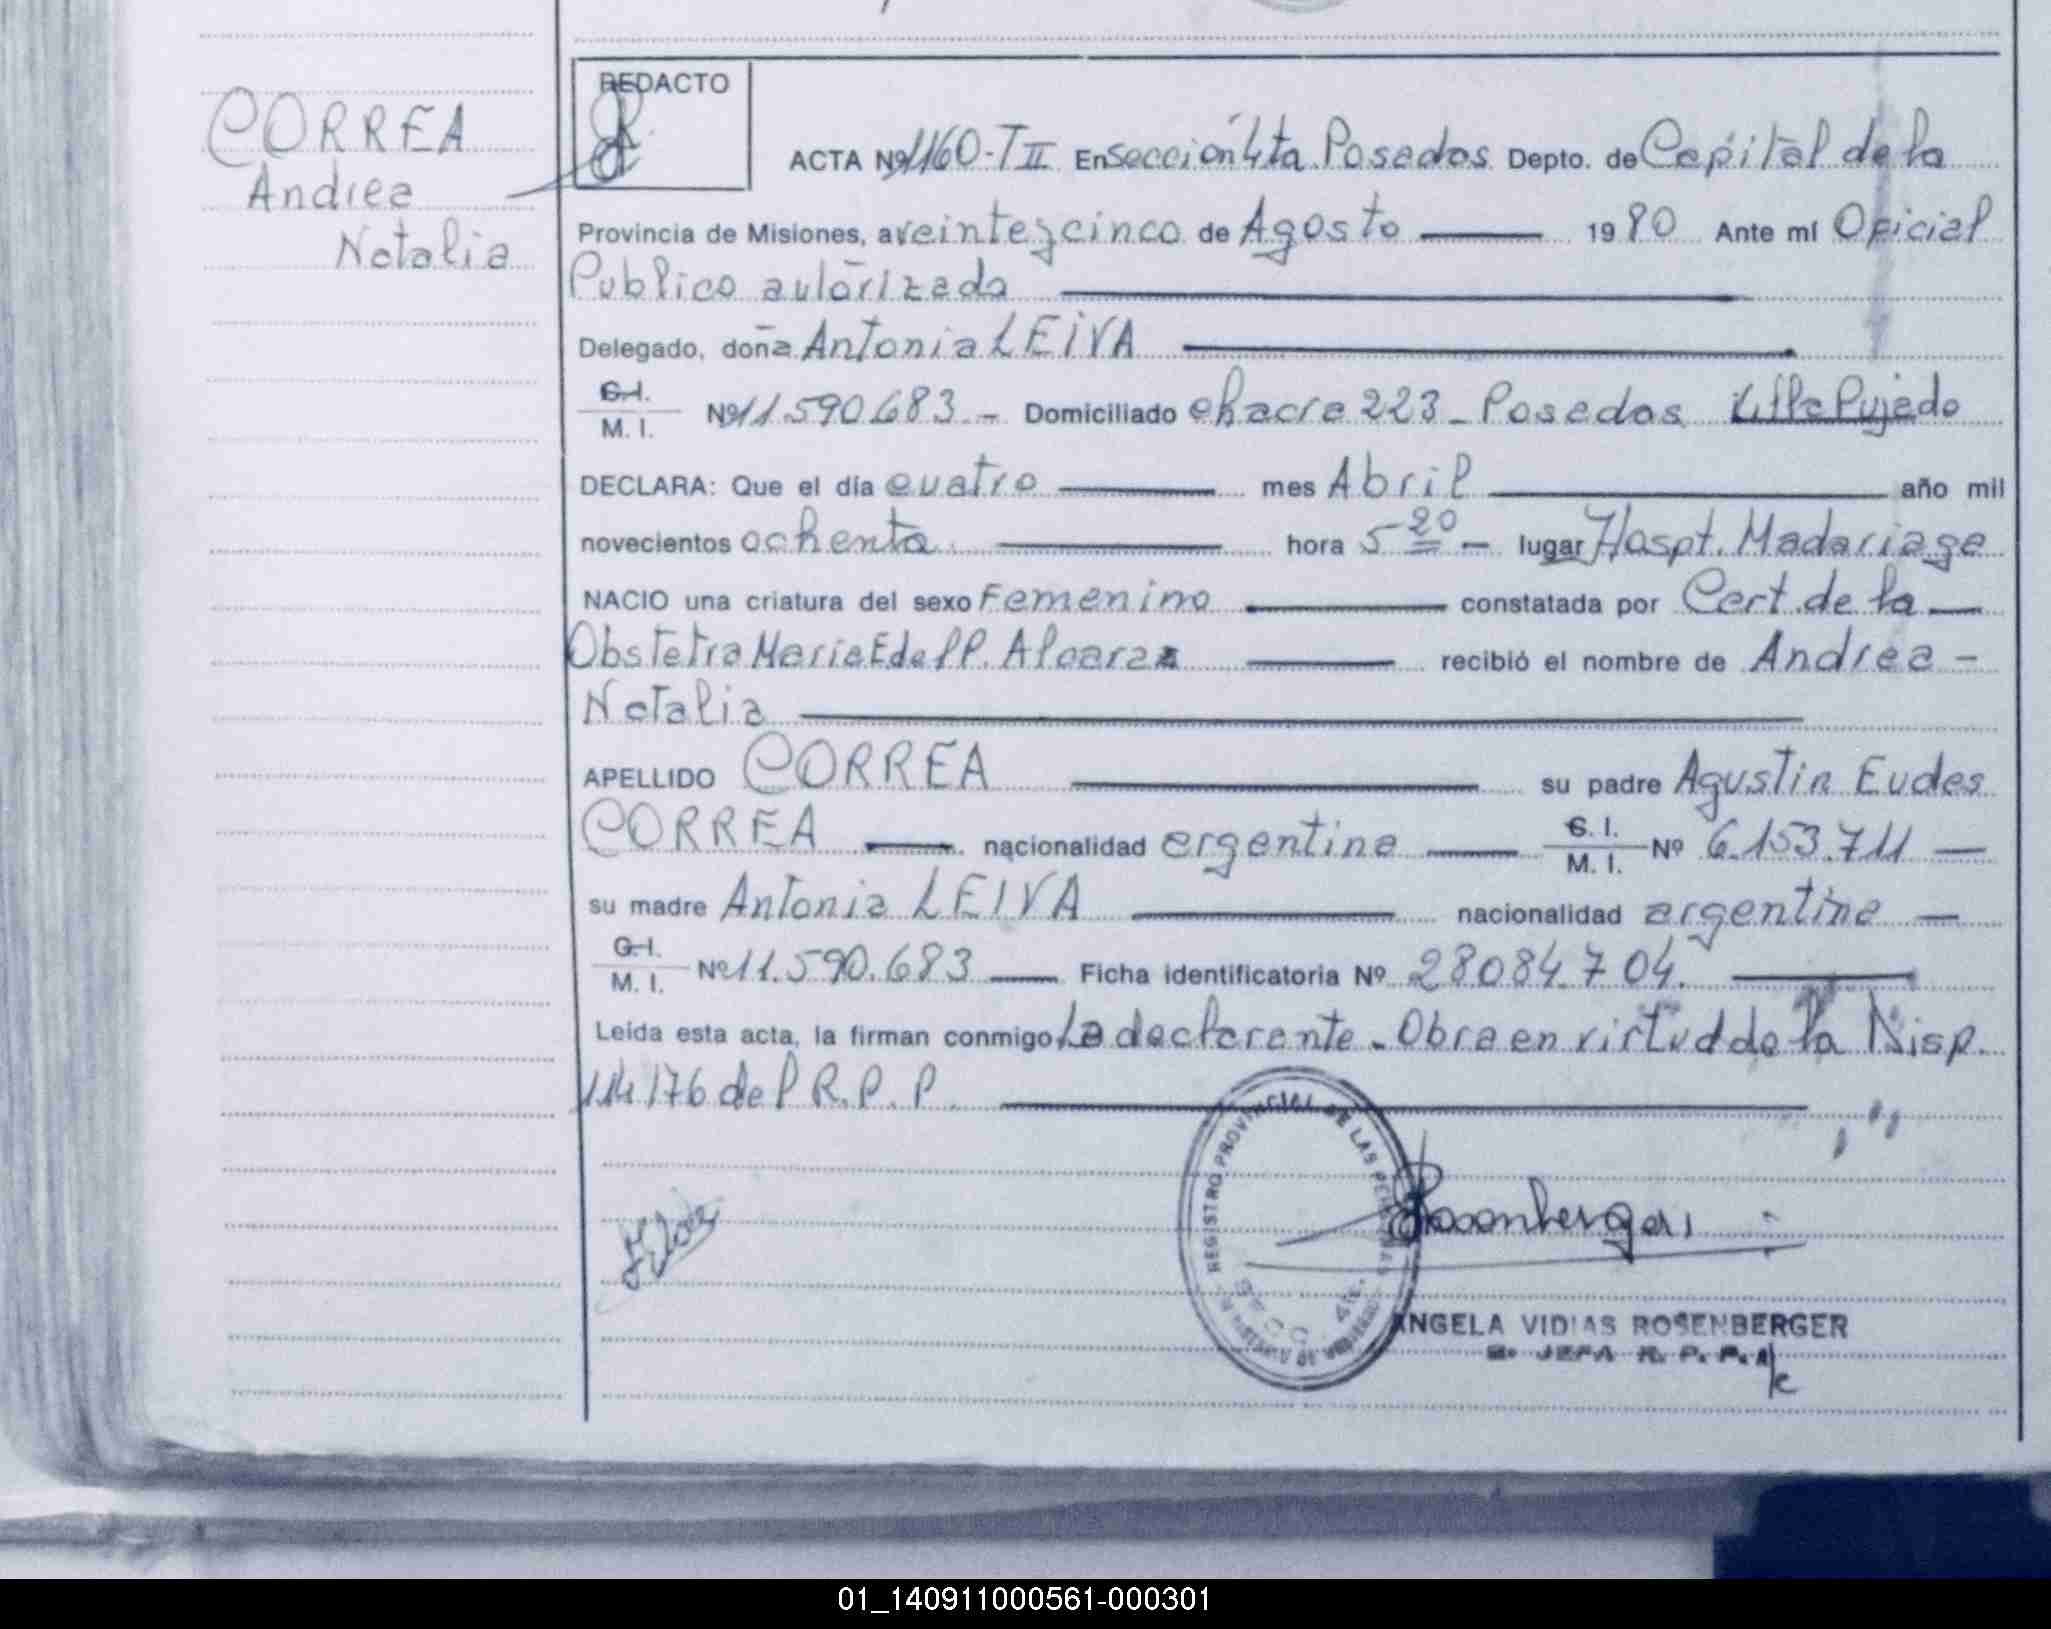 CORREA
Andrea
Natalia
REDACTO
ACTA Nº 1160-TII En Sección 4ta Posadas Depto. de Capital de la
Provincia de Misiones, a veinte y cinco de Agosto 1980 Ante mí Oficial
Publico autorizado
Delegado, doña Antonia LEIVA
C.I. M. I. Nº 11.590.683.- Domiciliado chacra 223 - Posadas Villa Pujado
DECLARA: Que el día cuatro mes Abril año mil
novecientos ochenta hora 5 20 - lugar Hospt. Madariaga
NACIO una criatura del sexo Femenino constatada por Cert. de la
Obstetra Maria E de PP. Alcaraz recibió el nombre de Andrea -
Natalia
APELLIDO CORREA su padre Agustin Eudes
CORREA nacionalidad argentina C. I. M. I. Nº 6.153.711 -
su madre Antonia LEIVA nacionalidad argentina -
C.I. M. I. Nº 11.590.683 Ficha identificatoria Nº 28084704.
Leída esta acta, la firman conmigo La declarante - Obra en virtud de la Disp.
114/76 del R. P. P.
REGISTRO PROVINCIAL DE LAS PERSONAS
SECC. 4ta.
Rosenberger
ANGELA VIDIAS ROSENBERGER
JEFA R. P. P. A/c
01_140911000561-000301